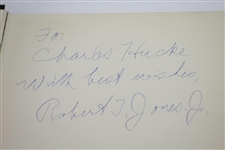 For
Charles Hucke
With best wishes,
Robert T. Jones, Jr.